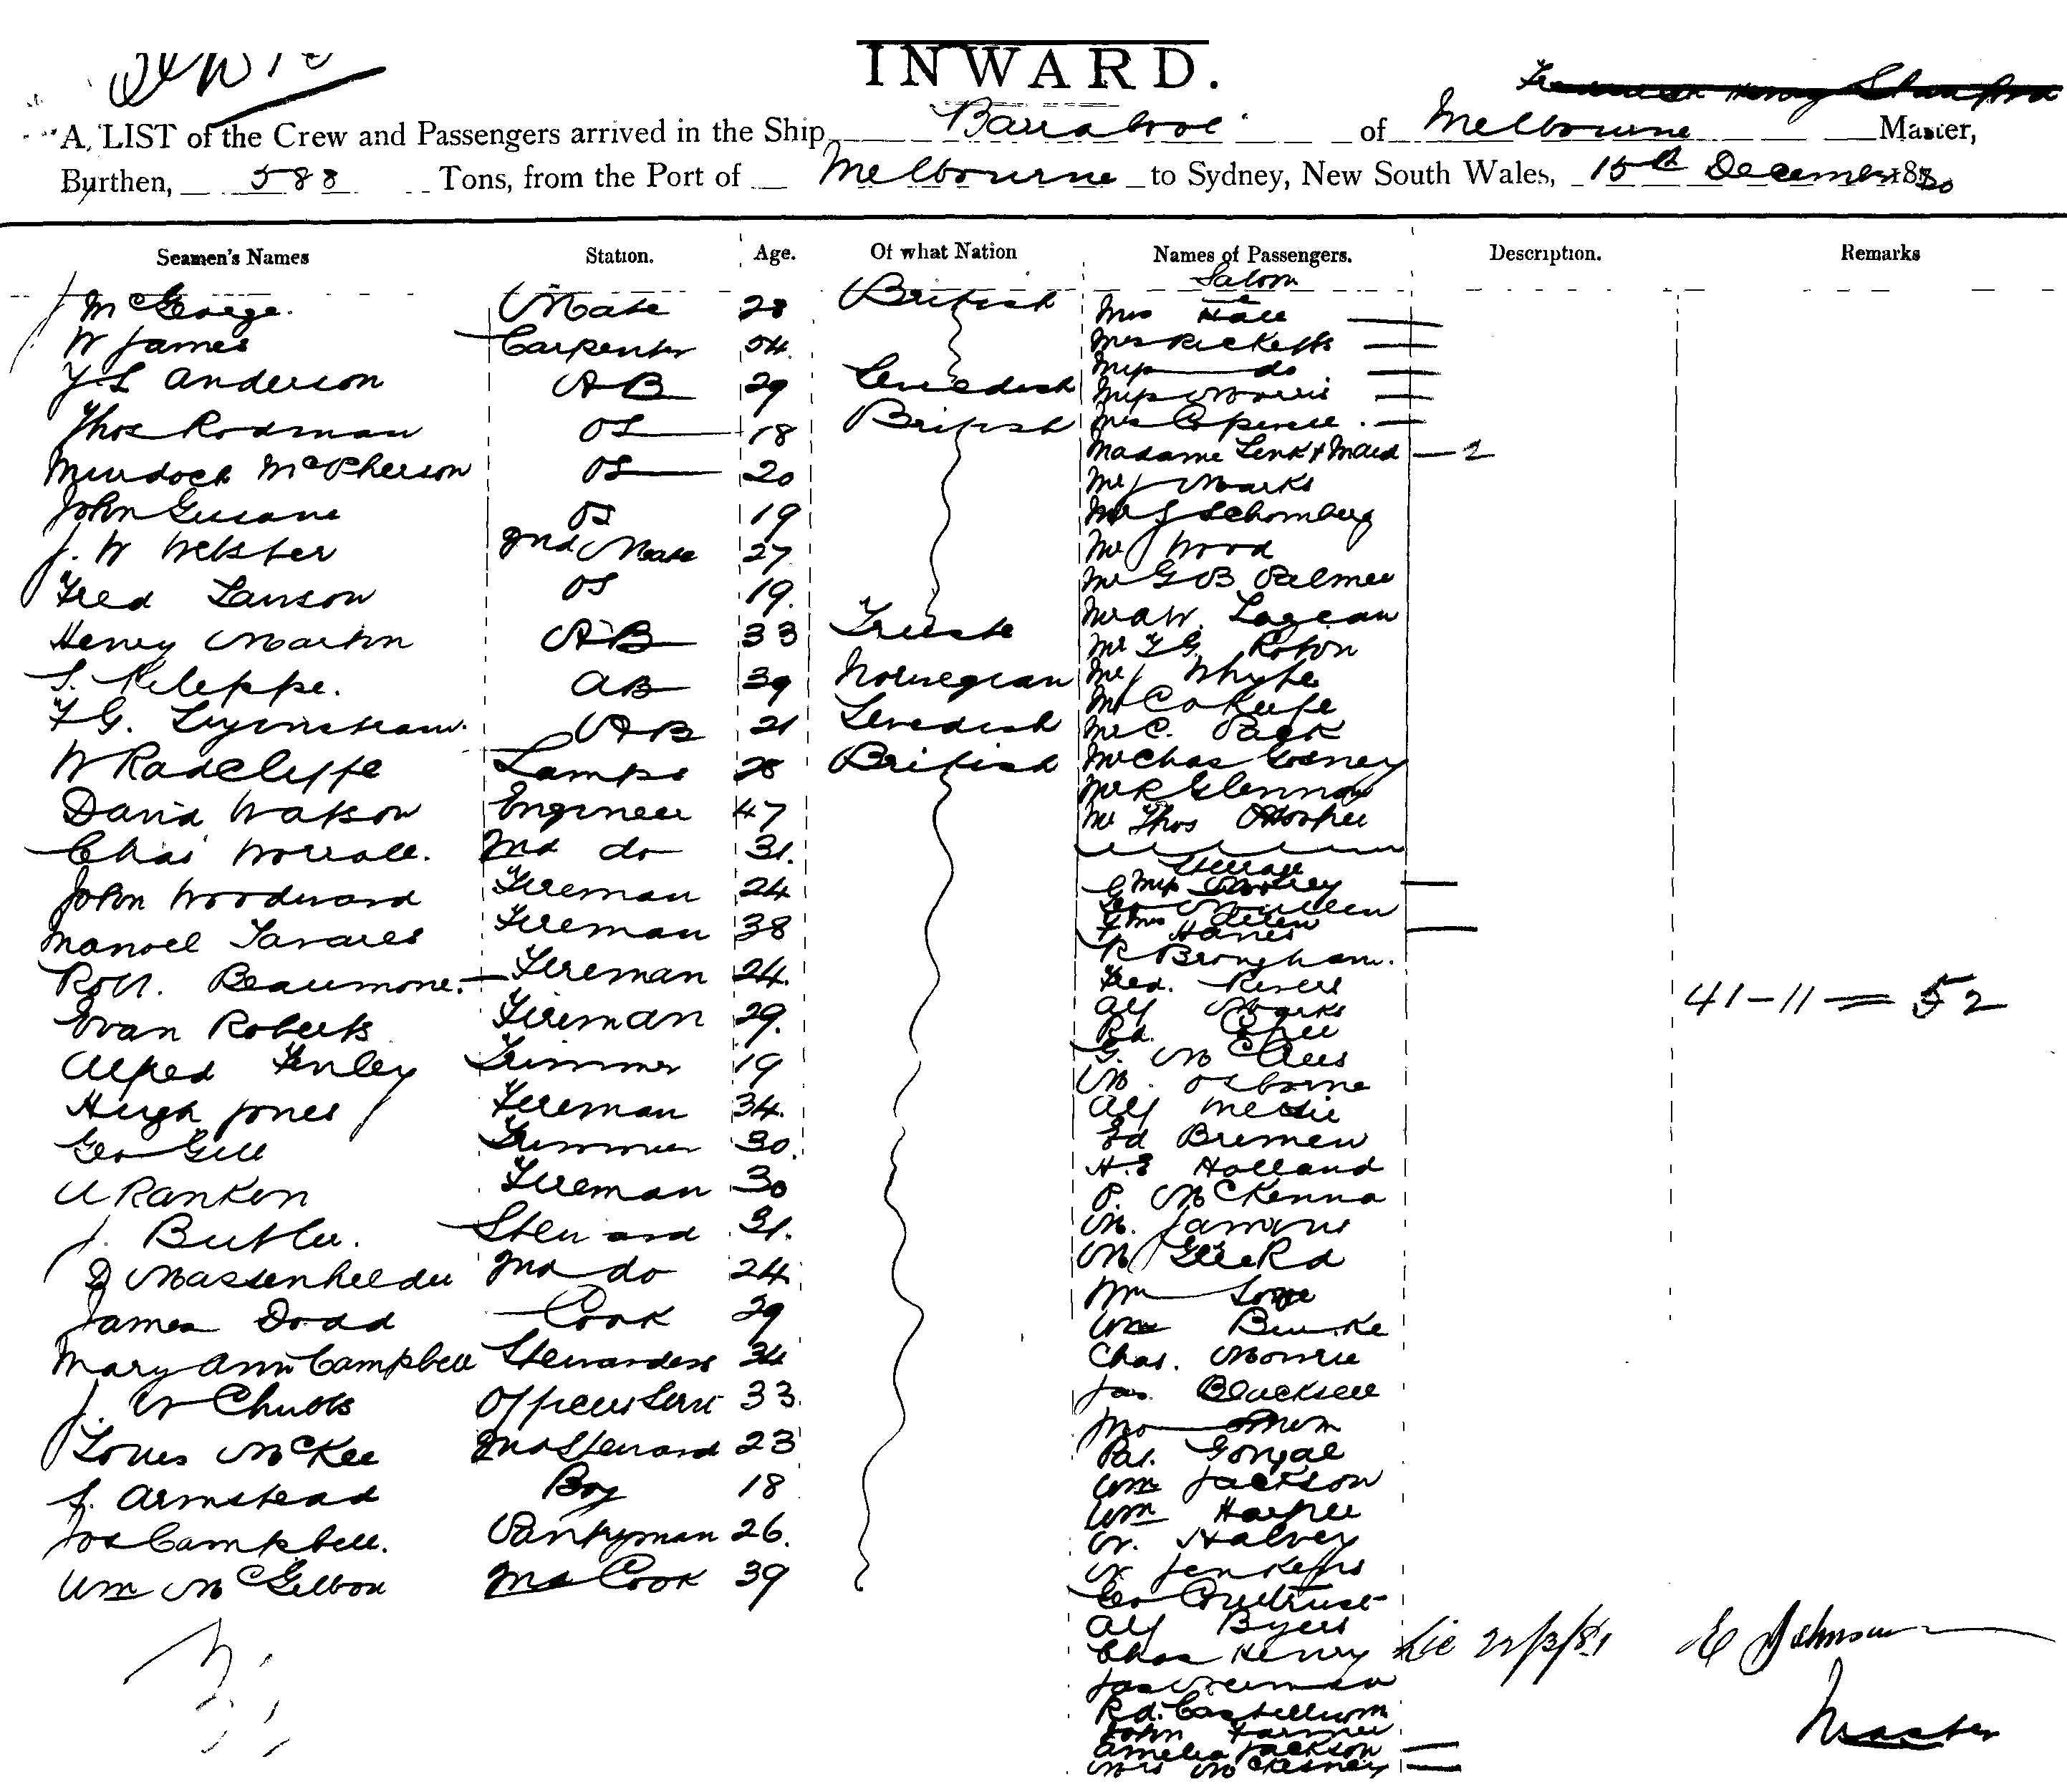 INWARD.
A LIST of the Crew and Passengers arrived in the Ship Barrabool of Melbourne Master,
Burthen, 588 Tons, from the Port of Melbourne to Sydney, New South Wales, 15th December 1880
Seamen's Names Station. Age. Of what Nation Names of Passengers. Description. Remarks
Saloon
McGeorge. Mate 28 British
W James Carpenter 54
J L Anderson AB 29 Swedish
Thos Rodman OS 18 British
Murdoch McPherson OS 20
John OS 19
J. W Webster 2nd Mate 27
Fred Lawson OS 19.
Henry Martin AB 33 Trieste
S. Kleppe. AB 39 Norwegian
F G. AB 21 Swedish
W Radcliffe Lamps 28 British
David Watson Engineer 47
Chas Worrall. 2nd do 31.
John Woodward Fireman 24
Manoel Tavares Fireman 38
Robt. Beaumone. Fireman 24.
Evan Roberts Fireman 29.
Alfred Finley Trimmer 19
Hugh Jones Fireman 34.
Geo Gill Trimmer 30.
A Rankin Fireman 30
J. Butler. Steward 31.
D Massenhelder 2nd do 24
James Dodd Cook 29
Mary Ann Campbell Stewardess 34
J. W Chubb Officers Servt 33.
Louis McKee 2nd Steward 23
J. Armstead Boy 18
Jos Campbell. Pantryman 26.
Wm McGibbon 2nd Cook 39
Mrs Hall
Mrs Ricketts
Miss do
Miss Morris
Mrs Spence.
Madame Lenk & Maid 2
Mr J Marks
Mr J Schomberg
Mr J Wood
Mr G B Palmer
Mr A W.
Mr F G. Robson
Mr J Whyte
Mr C O Keefe
Mr C. Pack
Mr Chas
Mr R Glennon
Mr Thos Hooper
Steerage
Miss
Geo Mullen
Mrs Allen
F Hanes
R Brougham.
Fred. Rivers
Alf Marks
Rd.
G. McClees
M. Osborne
Alf
Ed Bremen
H. E Holland
P. McKenna
M.
M
Wm
Wm Burke
Chas. Monroe
Jas. Blucksell
Jno
Pat.
Wm Jackson
Wm Harper
W. Halvey
W Jenkins
Geo
Alf Byers
Chas Henry
Jas
Rd. Castellum
John Farmer
Amelia Jackson
Mrs McKesney
41 - 11 = 52
22/3/81 E Johnson
Master